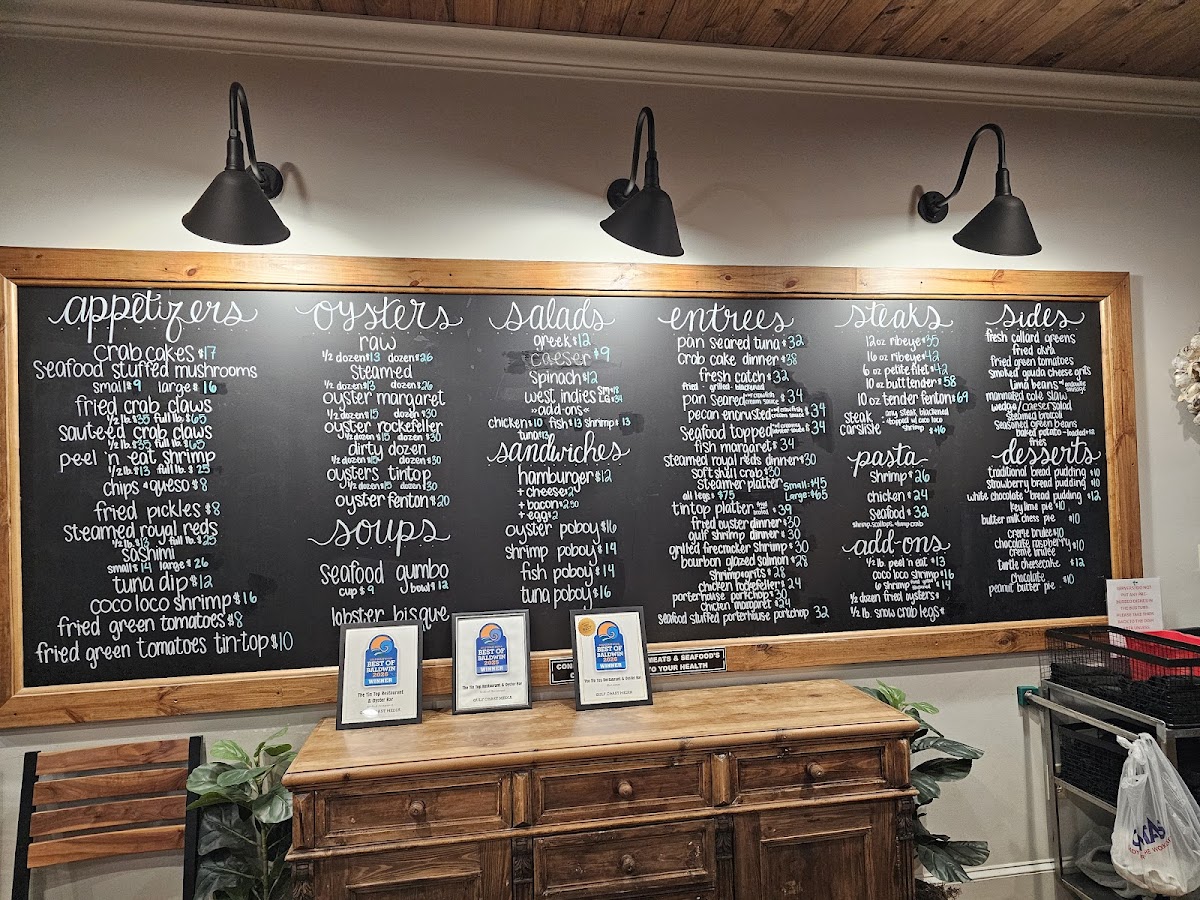 appetizers
crab cakes $17
seafood stuffed mushrooms
small $9 large $16
fried crab claws
1/2 lb. $35 full lb. $65
sauteed crab claws
1/2 lb. $35 full lb. $65
peel 'n' eat shrimp
1/2 lb. $13 full lb. $25
chips & queso $8
fried pickles $8
steamed royal reds
1/2 lb. $13 full lb. $25
sashimi
small $14 large $26
tuna dip $12
coco loco shrimp $16
fried green tomatoes $8
fried green tomatoes tin-top $10
oysters
raw
1/2 dozen $13 dozen $26
steamed
1/2 dozen $13 dozen $26
oyster margaret
1/2 dozen $15 dozen $30
oyster rockefeller
1/2 dozen $15 dozen $30
dirty dozen
1/2 dozen $15 dozen $30
oysters tintop
1/2 dozen $15 dozen $30
oyster fenton $20
soups
seafood gumbo
cup $9 bowl $12
lobster bisque
salads
greek $12
caeser $9
spinach $12
west indies sm $18
»add-ons«
chicken $10 fish $13 shrimp $13
tuna $13
sandwiches
hamburger $12
+ cheese
+ bacon $2.50
+ egg $2
oyster poboy $16
shrimp poboy $14
fish poboy $14
tuna poboy $16
entrees
pan seared tuna $32
crab cake dinner $38
fresh catch $32
fried - grilled - blackened
pan seared w/ crawfish cream sauce $34
pecan encrusted w/ crawfish cream sauce $34
seafood topped $34
fish margaret $34
steamed royal reds dinner $30
soft shell crab $30
steamer platter small: $45
all legs $75 large: $65
tintop platter $39
fried oyster dinner $30
gulf shrimp dinner $30
grilled firecracker shrimp $30
bourbon glazed salmon $28
shrimp & grits $28
chicken rockefeller $24
porterhouse porkchop $30
chicken margaret $24
seafood stuffed porterhouse porkchop 32
steaks
12 oz ribeye $35
16 oz ribeye $42
6 oz petite filet $42
10 oz butt tender $58
10 oz tender fenton $69
steak carslisle : any steak blackened & topped w/ coco loco shrimp + $16
pasta
shrimp $26
chicken $24
seafood $32
shrimp, scallops, lump crab
add-ons
1/2 lb. peel 'n' eat $13
coco loco shrimp $16
gulf shrimp $14
1/2 dozen fried oysters $
1/2 lb. snow crab legs $
sides
fresh collard greens
fried okra
fried green tomatoes
smoked gouda cheese grits
lima beans w/ andouille sausage
marinated cole slaw
wedge/caeser salad
steamed brocoli
seasoned green beans
baked potato - loaded + $2
fries
desserts
traditional bread pudding $10
strawberry bread pudding $10
white chocolate bread pudding $12
key lime pie $10
butter milk chess pie $10
creme brulee $10
chocolate raspberry creme brulee $10
turtle cheesecake $12
chocolate peanut butter pie $10
BEST OF BALDWIN
2025
WINNER
The Tin Top Restaurant
& Oyster Bar
BEST OF BALDWIN
2025
WINNER
The Tin Top Restaurant & Oyster Bar
GULF COAST MEDIA
BEST OF BALDWIN
2025
WINNER
The Tin Top Restaurant & Oyster Bar
GULF COAST MEDIA
MEATS & SEAFOOD'S
TO YOUR HEALTH